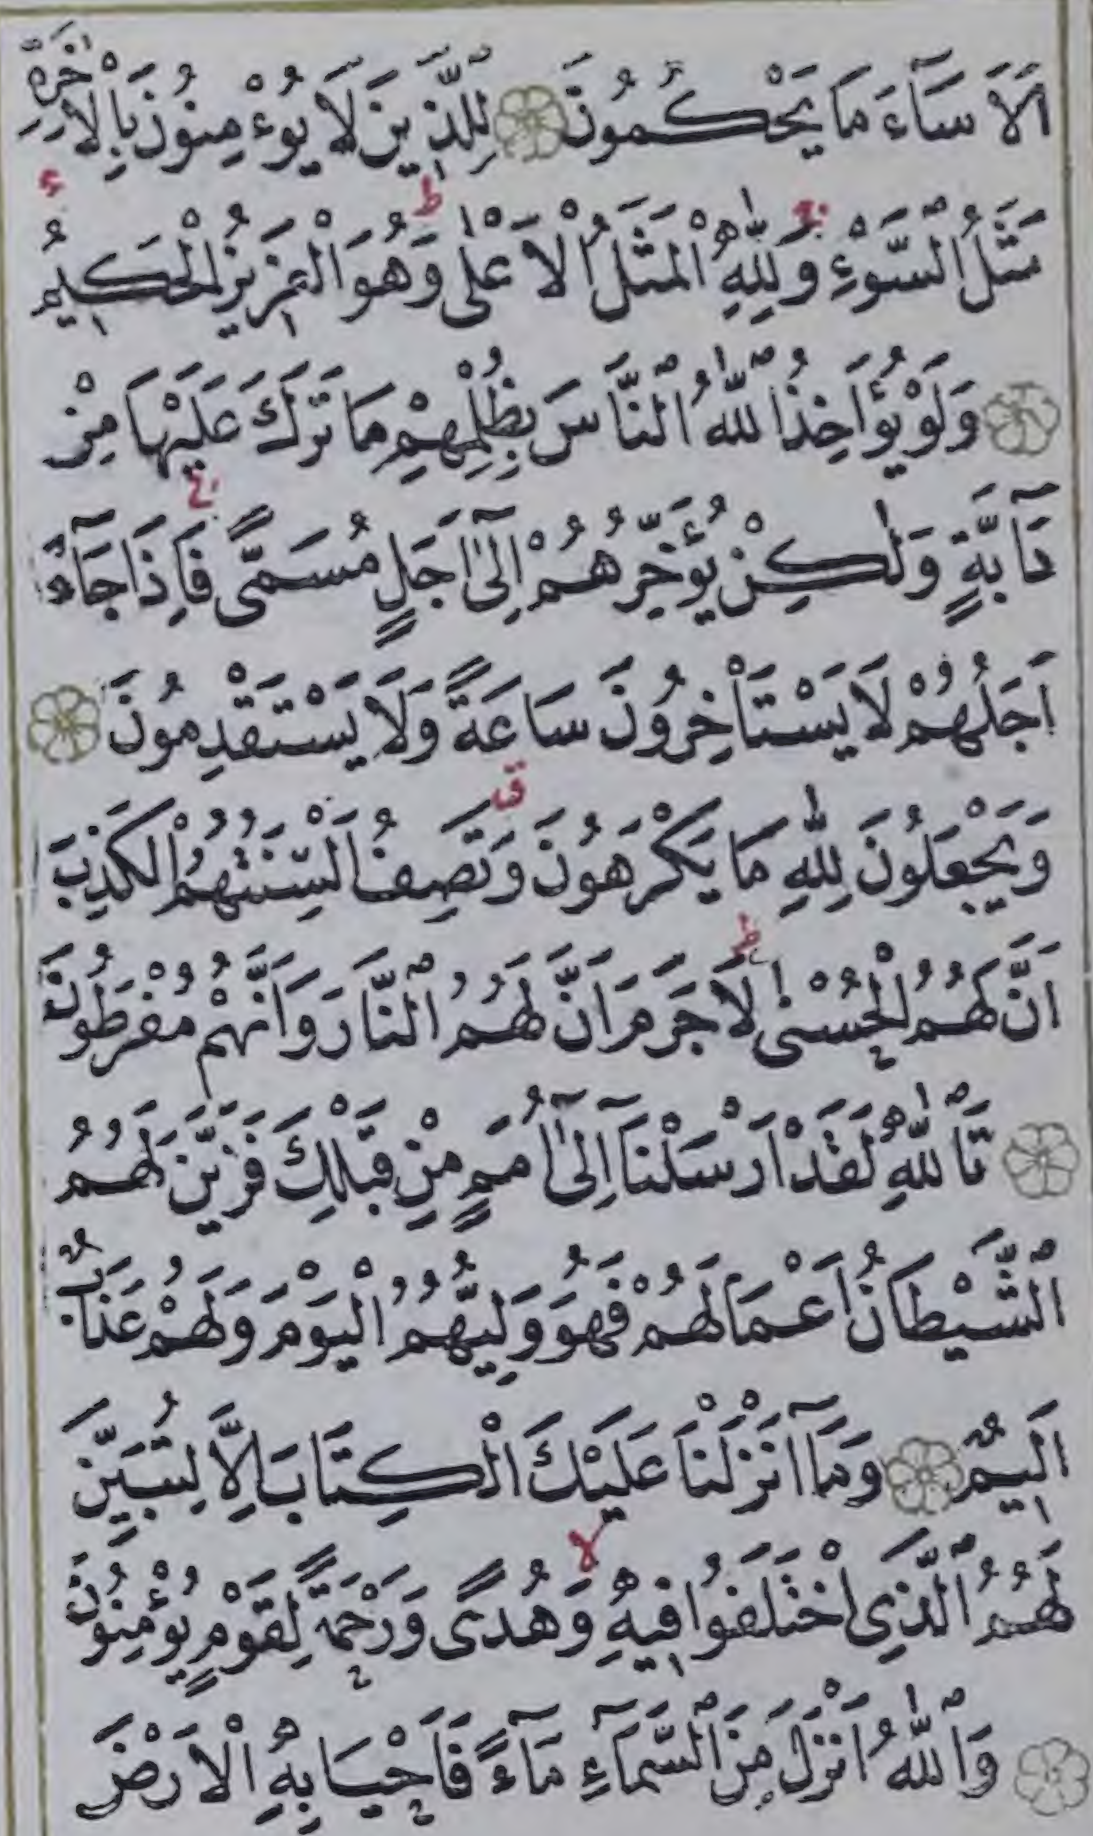 اَلَا سَٓاءَ مَا يَحْكُمُونَ لِلَّذ۪ينَ لَا يُوءْمِنُونَ بِالْاٰخِرَةِ
مَثَلُ السَّوْءِ ج وَلِلّٰهِ الْمَثَلُ الْاَعْلٰى ط وَهُوَ الْعَز۪يزُ الْحَك۪يمُ ع
وَلَوْ يُؤَاخِذُ اللّٰهُ النَّاسَ بِظُلْمِهِمْ مَا تَرَكَ عَلَيْهَا مِنْ
دَٓابَّةٍ وَلٰكِنْ يُؤَخِّرُهُمْ اِلٰٓى اَجَلٍ مُسَمًّى ج فَاِذَا جَٓاءَ
اَجَلُهُمْ لَا يَسْتَاْخِرُونَ سَاعَةً وَلَا يَسْتَقْدِمُونَ
وَيَجْعَلُونَ لِلّٰهِ مَا يَكْرَهُونَ ق وَتَصِفُ اَلْسِنَتُهُمُ الْكَذِبَ
اَنَّ لَهُمُ الْحُسْنٰى ط لَا جَرَمَ اَنَّ لَهُمُ النَّارَ وَاَنَّهُمْ مُفْرَطُونَ
تَاللّٰهِ لَقَدْ اَرْسَلْنَٓا اِلٰٓى اُمَمٍ مِنْ قَبْلِكَ فَزَيَّنَ لَهُمُ
الشَّيْطَانُ اَعْمَالَهُمْ فَهُوَ وَلِيُّهُمُ الْيَوْمَ وَلَهُمْ عَذَابٌ
اَل۪يمٌ وَمَٓا اَنْزَلْنَا عَلَيْكَ الْكِتَابَ اِلَّا لِتُبَيِّنَ
لَهُمُ الَّذِي اخْتَلَفُوا ف۪يهِ لا وَهُدًى وَرَحْمَةً لِقَوْمٍ يُؤْمِنُونَ
وَاللّٰهُ اَنْزَلَ مِنَ السَّمَٓاءِ مَٓاءً فَاَحْيَا بِهِ الْاَرْضَ